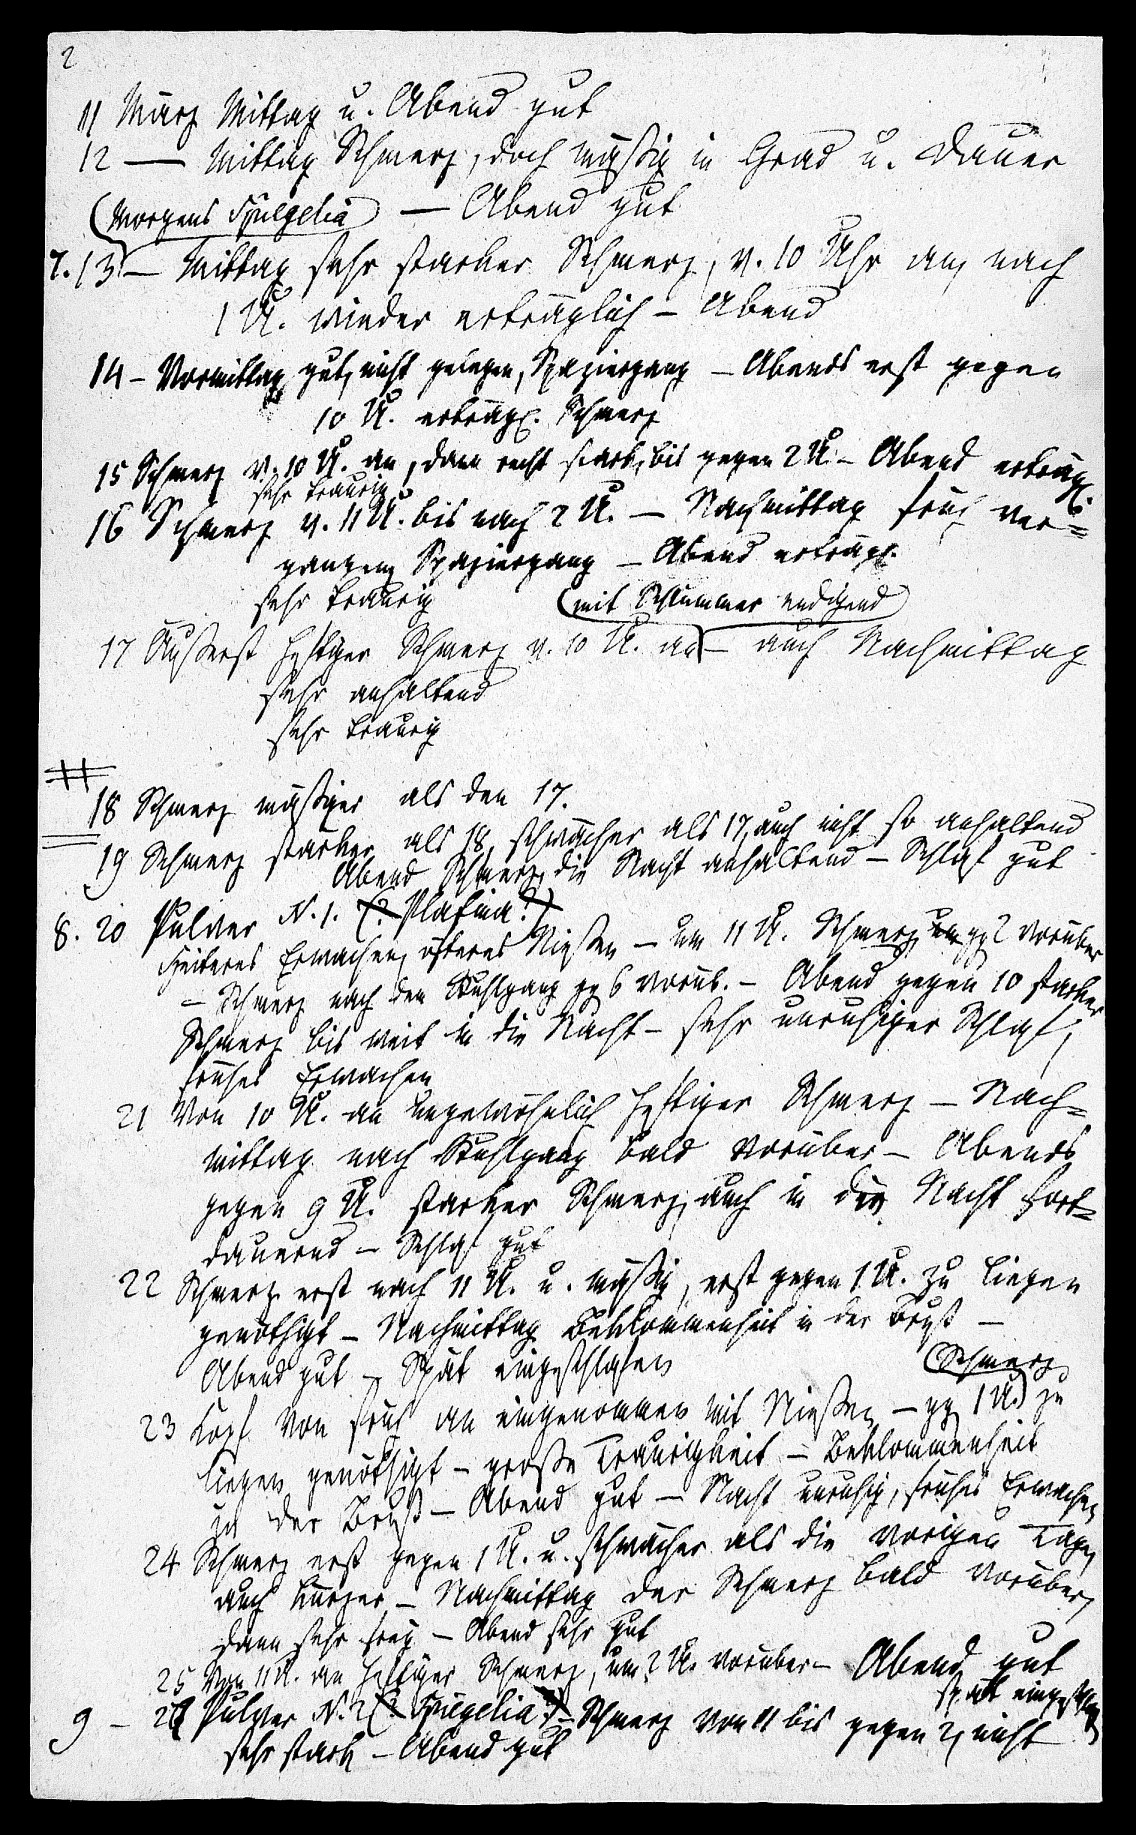 2
11 März Mittag u. Abend gut
12 — Mittag Schmerz, doch mäßig in Grad u. Dauer
(Morgens Spigelia) — Abend gut
7. 13 — Mittag sehr starker Schmerz, v. 10 Uhr an, nach
1 U. wieder erträglich — Abend
14 — Vormittag gut, nicht gelegen, Spaziergang — Abends erst gegen
10 U. erträgl. Schmerz
15 Schmerz v. 10 U. an, dann recht stark, bis gegen 2 U — Abend erträgl.
sehr traurig
16 Schmerz v. 11 U. bis nach 2 U. — Nachmittag früh ver=
gangen, Spaziergang — Abend erträgl.
sehr traurig (mit Schlummer endigend)
17 Äußerst heftiger Schmerz v. 10 U. an — auch Nachmittag
sehr anhaltend
sehr traurig
18 Schmerz mäßiger als den 17.
19 Schmerz stärker als 18, schwächer als 17, auch nicht so anhaltend
Abend Schmerz, die Nacht anhaltend — Schlaf gut
8. 20 Pulver N. 1. (? Platina?)
Heiteres Erwachen, öfteres Nießen — um 11 U. Schmerz, um gg 2 vorüber
— Schmerz nach den Stuhlgang gg 6 vorüb. — Abend gegen 10 starker
Schmerz bis weit in die Nacht — sehr unruhiger Schlaf,
frühes Erwachen
21 Von 10 U. an ungewöhnlich heftiger Schmerz — Nach=
mittag nach Stuhlgang bald vorüber — Abends
gegen 9 U. starker Schmerz, auch in der Nacht fort=
dauernd — Schlaf gut
22 Schmerz erst nach 11 U. u. mäßig, erst gegen 1 U. zu liegen
genöthigt — Nachmittag Beklommenheit in der Brust —
Abend gut — Spät eingeschlafen
(Schmerz
23 Kopf von früh an eingenommen mit Nießen — gg 1 U.) zu
liegen genöthigt — große Traurigkeit — Beklommenheit
in der Brust — Abend gut — Nacht unruhig, frühes Erwachen
24 Schmerz erst gegen 1 U. u. schwächer als die vorigen Tage,
auch kürzer — Nachmittag der Schmerz bald vorüber,
dann sehr frey — Abend sehr gut
25 Von 11 U. an heftiger Schmerz, um 2 U. vorüber — Abend gut
spät eingeschlafen
9 — 26 Pulver N. 2 (? Spigelia?) — Schmerz von 11 bis gegen 2, nicht
sehr stark — Abend gut